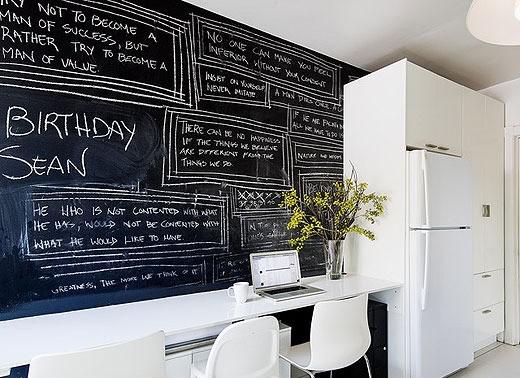 RY NOT TO BECOME A
MAN OF SUCCESS, BUT
RATHER TRY TO BECOME A
MAN OF VALUE.
NO ONE CAN MAKE YOU FEEL
INFERIOR WITHOUT YOUR CONSENT
INSIST ON YOURSELF
NEVER IMITATE
A MAN DIES ONCE A
BIRTHDAY
SEAN
THERE CAN BE NO HAPPINESS
IF THE THINGS WE BELIEVE
ARE DIFFERENT FROM THE
THINGS WE DO.
IF WE ARE FACING
ALL WE HAVE TO DO IS
NATURE AND
HE WHO IS NOT CONTENTED WITH WHAT
HE HAS, WOULD NOT BE CONTENTED WITH
WHAT HE WOULD LIKE TO HAVE.
IN THE
GREATNESS, THE MORE WE THINK OF